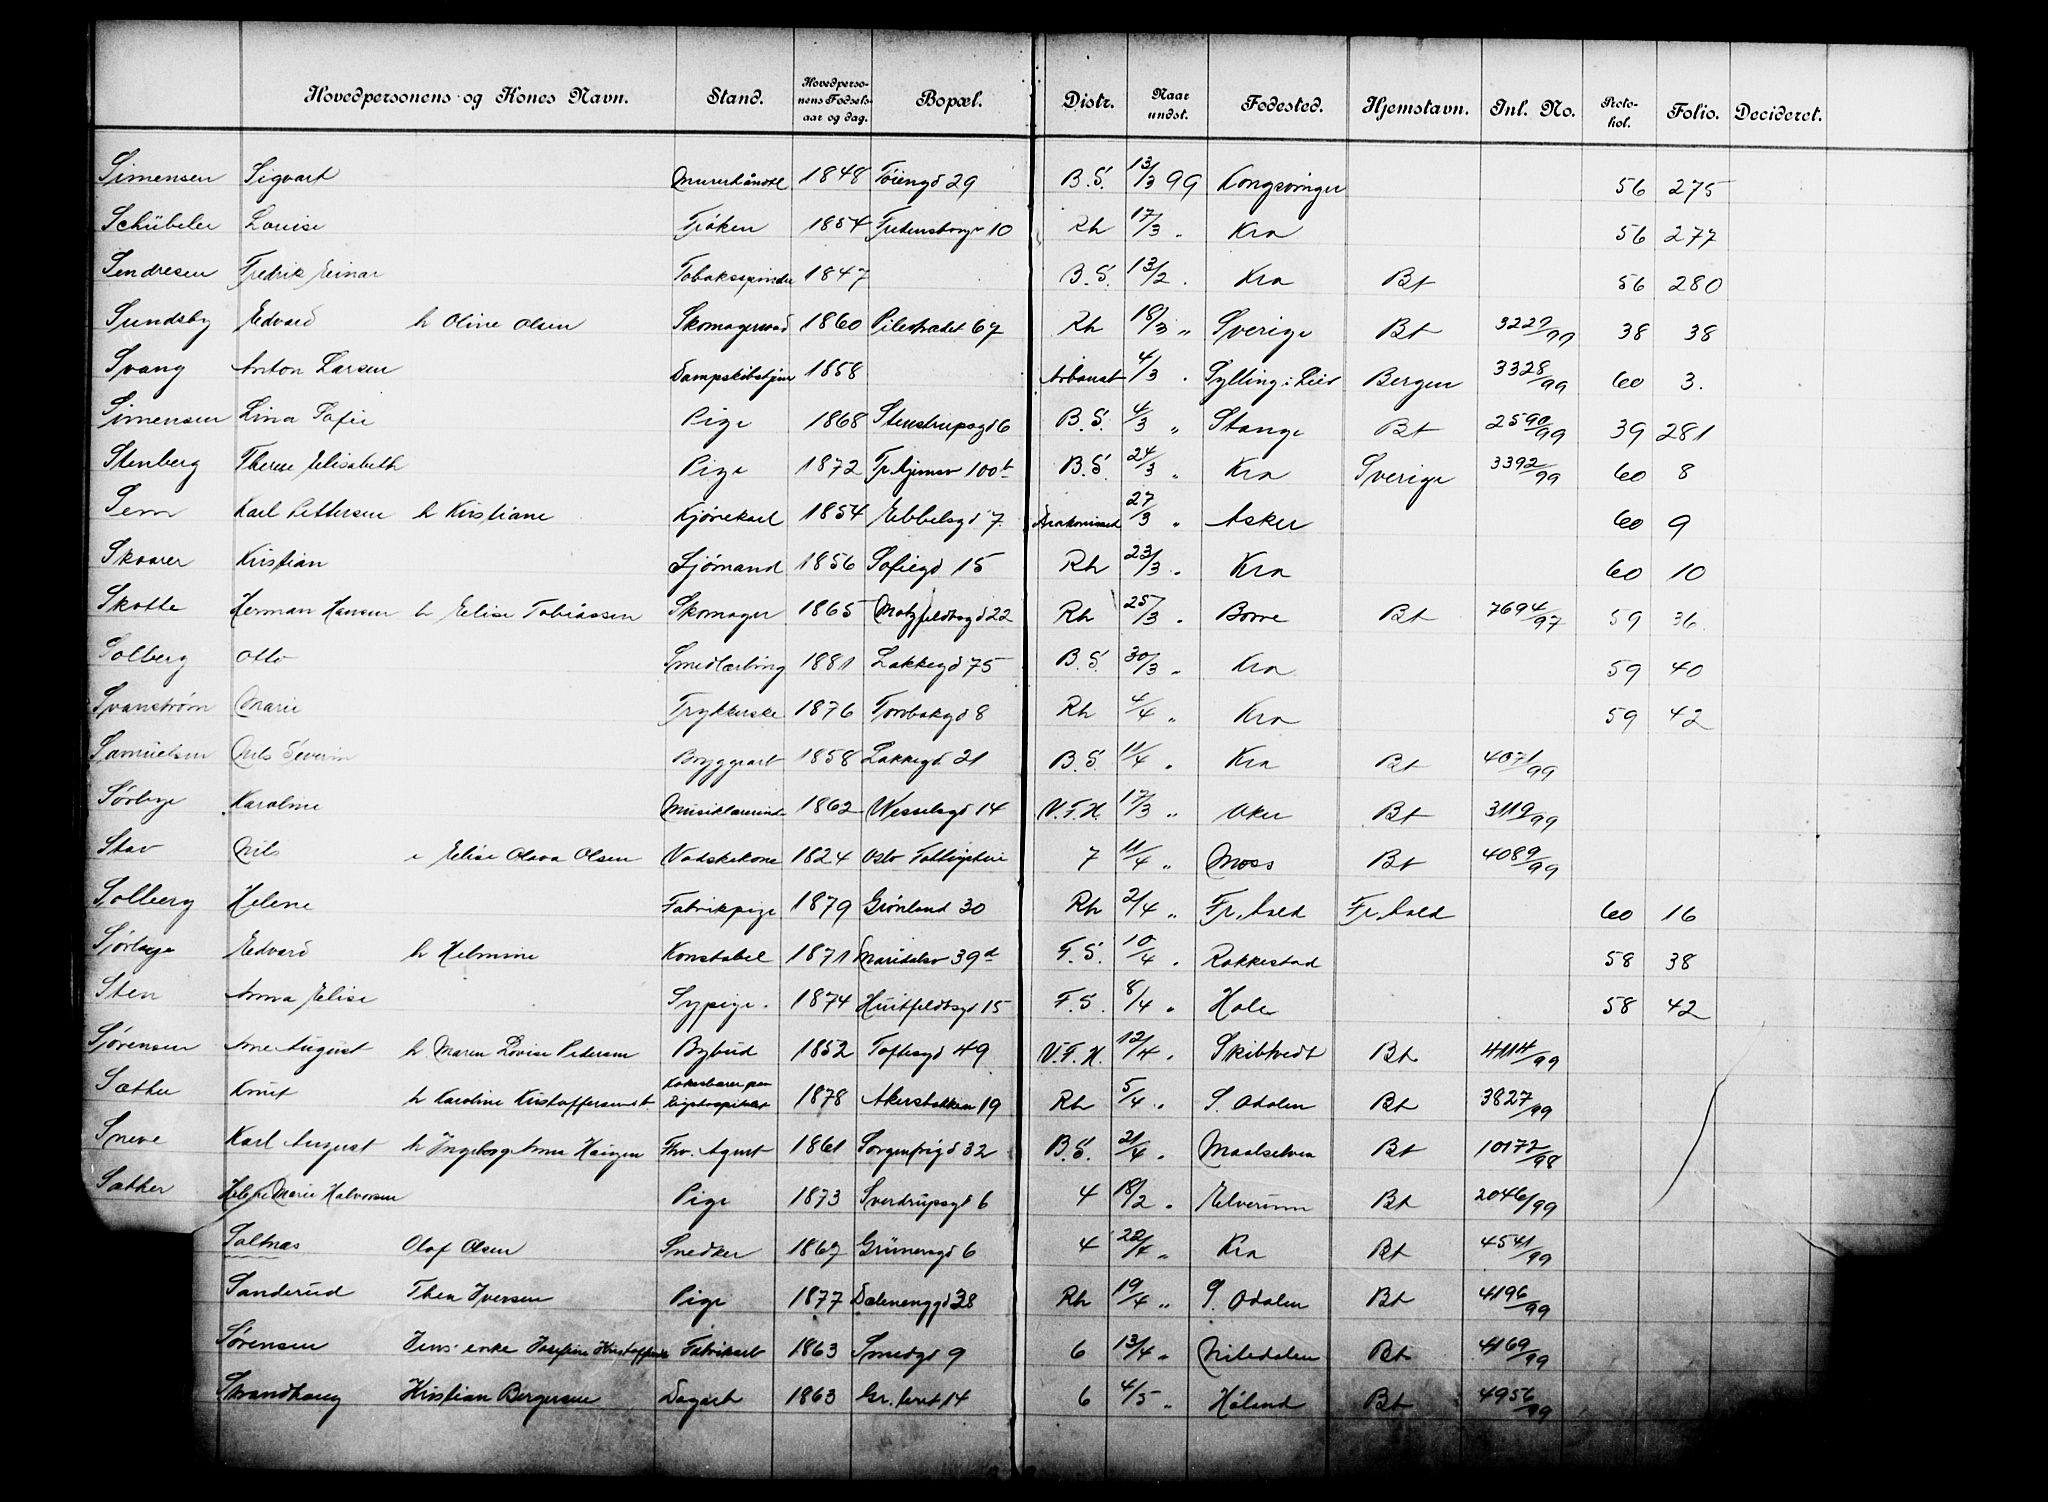 Hovedpersonens og Kones Navn. Stand. Hovedpersonens Fødselsaar og dag. Bopæl. Distr. Naar undst. Fødested. Hjemstavn. Inl. No. Protokol. Folio. Decideret.
Simensen Sigvart Murerhåndtl 1848 Töiengd 29 B.S. 13/3 99 Kongsvinger 56 275
Schübeler Louise Frøken 1854 Fredensborgv 10 Rh 17/3 " Kra 56 277
Sendresen Fredrik Einar Tobaksspinder 1847 B.S. 13/2 " Kra Bt 56 280
Sundsby Edvard h Oline Olsen Skomagersvend 1860 Pilestrædet 67 Rh 18/3 " Sverige Bt 3229/99 38 38
Svang Anton Larsen Dampskibstjen 1858 Arbanst 4/3 " Sylling i Lier Bergen 3328/99 60 3.
Simensen Lina Sofie Pige 1868 Stenstrupsgd 6 B.S. 4/3 " Stange Bt 2590/99 39 281
Stenberg Therese Elisabeth Pige 1872 Tr.hjemsv 100b B.S. 24/3 " Kra Sverige 3392/99 60 8
Sem Karl Pettersen h Kristiane Kjørekarl 1854 Ebbelsgd 7. 27/3 " Asker 60 9
Skaarer Kristian Sjömand 1856 Sofiegd 15 Rh 23/3 " Kra 60 10
Skotte Herman Hansen h Elise Tobiassen Skomager 1865 Motzfeldtsgd 22 Rh 25/3 " Borre Bt 7694/97 59 36.
Solberg Otto Smedlærling 1881 Lakkegd 75 B.S. 30/3 " Kra 59 40
Svanstrøm Marie Trykkerske 1876 Torvbakgd 8 Rh 4/4 " Kra 59 42
Samuelsen Nils Severin Bryggearb 1858 Lakkegd. 21 B.S. 11/4 " Kra Bt 4071/99
Sørbye Karoline Musiklærerinde 1862 Wesselsgd 14 V.F.H. 17/3 " Aker Bt 3119/99
Stav Nils e Elise Olava Olsen Vadskekone 1824 Oslo Fattigstue 7 11/4 " Moss Bt 4089/99
Solberg Helene Fabrikpige 1879 Grönland 30 Rh 2/4 " Fr.hald Fr.hald 60 16
Sjörbye Edvard h Helmine Konstabel 1871 Maridalsv 39d F.S. 10/4 " Rakkestad 58 38
Sten Anna Elise Sypige. 1874 Huitfeldtsgd 15 F.S. 8/4 " Hole 58 42
Sjørensen Arne August h Maren Lovise Pedersen Bybud 1852 Toftesgd 49 V.F.H. 12/4 " Skibtvedt Bt 4114/99
Sæther Knut h Karoline Kristoffersensd. Koksbærer paa Rigshospitalet 1878 Akersbakken 19 Rh 5/4 " S. Odalen Bt 3827/99
Sneve Karl August h Ingeborg Anna Haugen Fhv. Agent 1861 Sorgenfrigd 32 B.S. 21/4 " Maalselven Bt 10172/98
Sæther Helene Marie Halvorsen Pige 1873 Sverdrupsgd 6 4 18/2 " Elverum Bt 2046/99
Saltnæs Olaf Olsen Snedker 1867 Grünersgd 6 4 22/4 " Kra Bt 4541/99
Sanderud Thea Iversen Pige 1877 Dælenenggd 38 Rh 19/4 " S. Odalen Bt 4196/99
Sørensen Jens' enke Josefine Kristoffersen Fabrikarb 1863 Smedgd 9 6 13/4 " Nitedalen Bt 4169/99
Strandhaug Kristian Bergersen Dagarb 1863 Gr. leret 14 6 4/5 " Høland Bt 4956/99